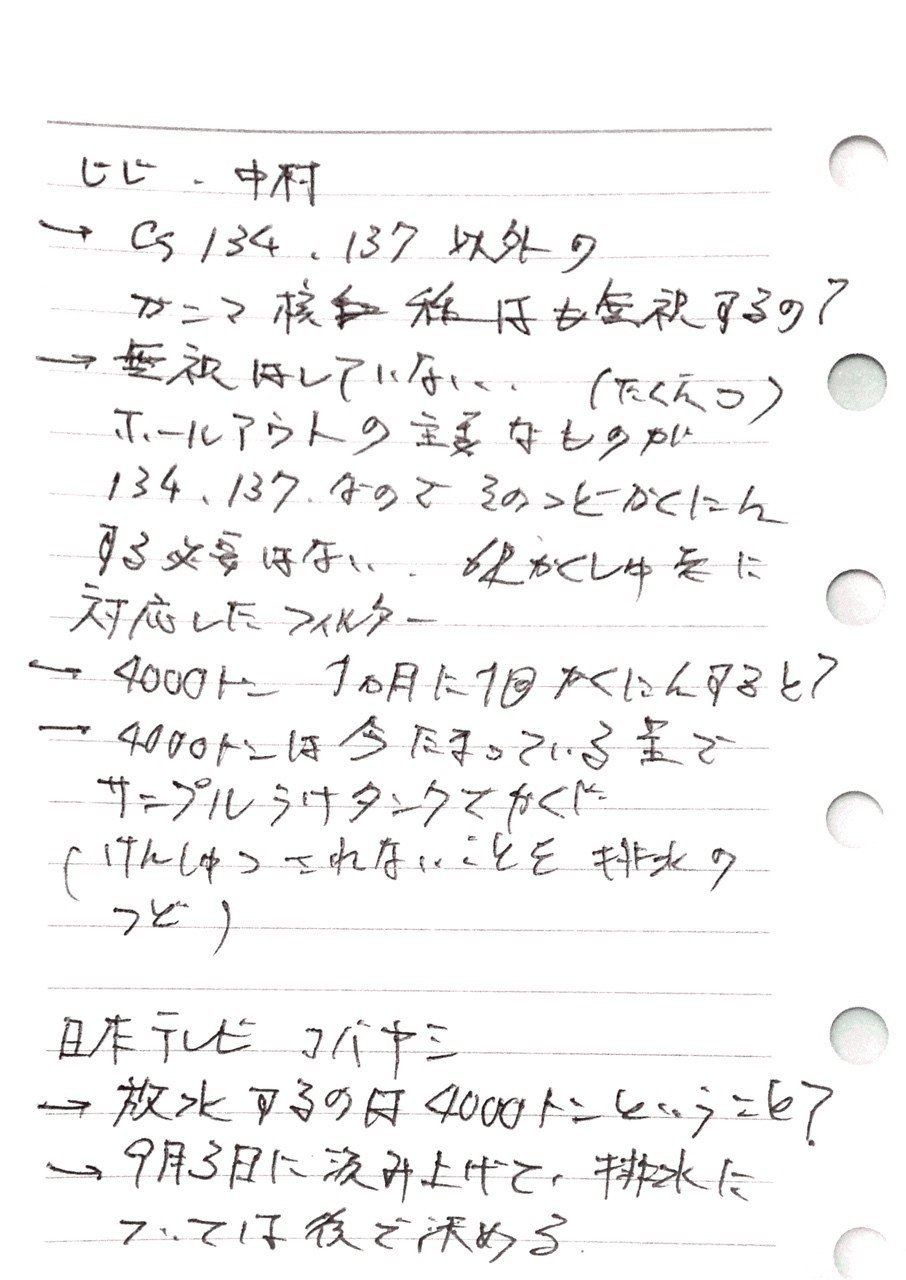 ビビ・中村
→ Cs 134、137 以外の
ガンマ核種はも無視するの?
→ 無視はしていない。
ホールアウトの主要なものが
134、137、なのでそのつどかくにん
する必要はない。 かくしゅ全に
対応したフィルター
→ 4000トン 1ヵ月に1回かくにんすると?
→ 4000トンは今たまっている量で
サンプルうけタンクでかくに
(けんしゅつされないことを排水の
つど)
日本テレビ コバヤシ
→ 放水するのは4000トンということ?
→ 9月3日に汲み上げて、排水に
ついては後で決める